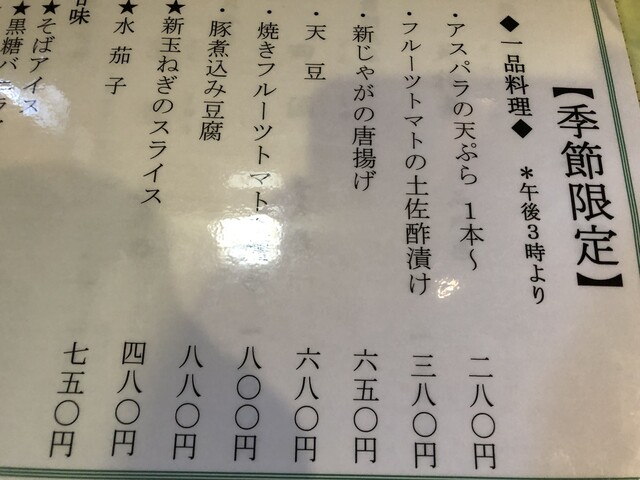 【季節限定】
◆一品料理◆ *午後3時より
・アスパラの天ぷら 1本〜 二八〇円
・フルーツトマトの土佐酢漬け 三八〇円
・新じゃがの唐揚げ 六五〇円
・天豆 六八〇円
・焼きフルーツトマト 八〇〇円
・豚煮込み豆腐 八八〇円
★新玉ねぎのスライス 四八〇円
★水茄子 七五〇円
甘味
★そばアイス
★黒糖バ